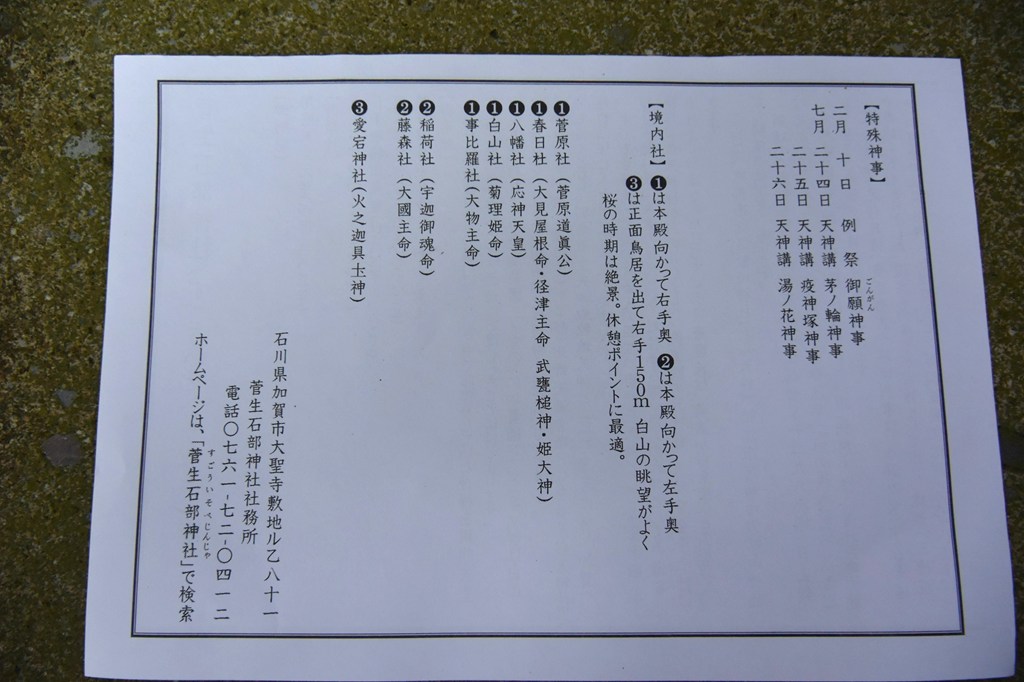 【特殊神事】
二月　十日　例　祭　御願神事
ごんがん
七月　二十四日　天神講　茅ノ輪神事
二十五日　天神講　疫神塚神事
二十六日　天神講　湯ノ花神事
【境内社】❶は本殿向かって右手奥　❷は本殿向かって左手奥
❸は正面鳥居を出て右手150m　白山の眺望がよく
桜の時期は絶景。休憩ポイントに最適。
❶菅原社（菅原道眞公）
❶春日社（大見屋根命・径津主命　武甕槌神・姫大神）
❶八幡社（応神天皇）
❶白山社（菊理姫命）
❶事比羅社（大物主命）
❷稲荷社（宇迦御魂命）
❷藤森社（大國主命）
❸愛宕神社（火之迦具土神）
石川県加賀市大聖寺敷地ル乙八十一
菅生石部神社社務所
電話〇七六一-七二-〇四一二
すごういそべじんじゃ
ホームページは、「菅生石部神社」で検索